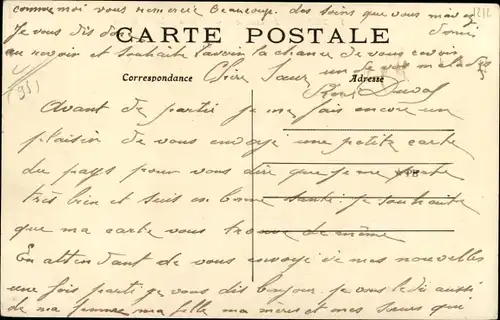 comme moi vous remercie beaucoup. des soins que vous m'avez donné
Je vous dis donc
CARTE POSTALE
au revoir et souhaite d'avoir la chance de vous revoir
un de vos malades
Correspondance
Chère Sœur
Adresse
René Duval
Avant de partir je me fais encore un
plaisir de vous envoyé une petite carte
du pays pour vous dire que je me porte
très bien et suis en bonne santé. je souhaite
que ma carte vous trouve de même
En attendant de vous envoyé de mes nouvelles
une fois parti je vous dis bonjour. je vous le dis aussi
de ma femme ma fille ma mère et mes sœurs qui